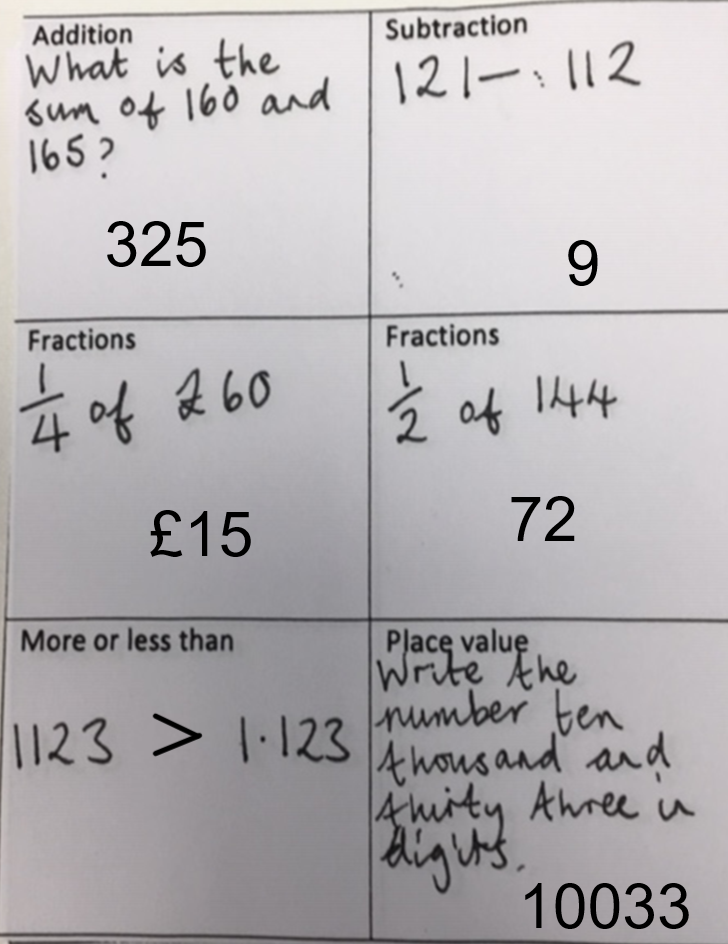 Addition
What is the
sum of 160 and
165?
325
Subtraction
121 - 112
9
Fractions
1/4 of £60
£15
Fractions
1/2 of 144
72
More or less than
1123 > 1.123
Place value
Write the
number ten
thousand and
thirty three in
digits.
10033